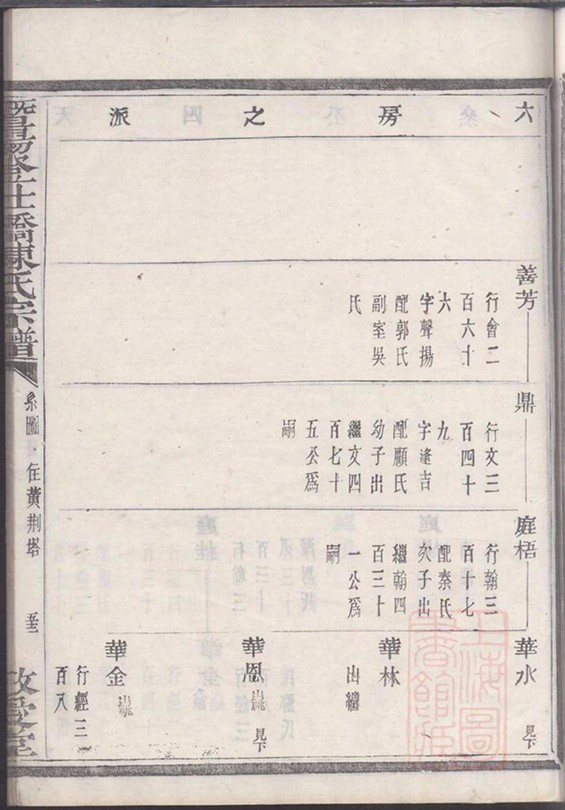 六房之派
善芳
行會二
百六十
六
字聲揚
配郭氏
副室吳
氏
鼎
行文三
百四十
九
字逢吉
配顧氏
幼子出
繼文四
百七十
五公為
嗣
庭梧
行翰三
百十七
配秦氏
次子出
繼翰四
百三十
一公為
嗣
華水
見下
華林
出繼
華恩
見下
華金
行經三
百八
暨陽
橋陳氏宗譜
系圖
住黃荆塔
敦
堂
上海圖書館藏